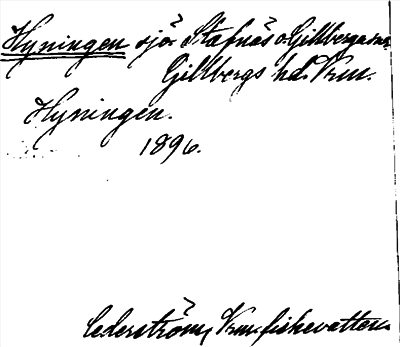 Hyningen sjö. Stafnäs o Gillberga snr
Gillbergs hd. Vrm.
Hyningen.
1896.
Cederström, Vrm. fiskevatten.